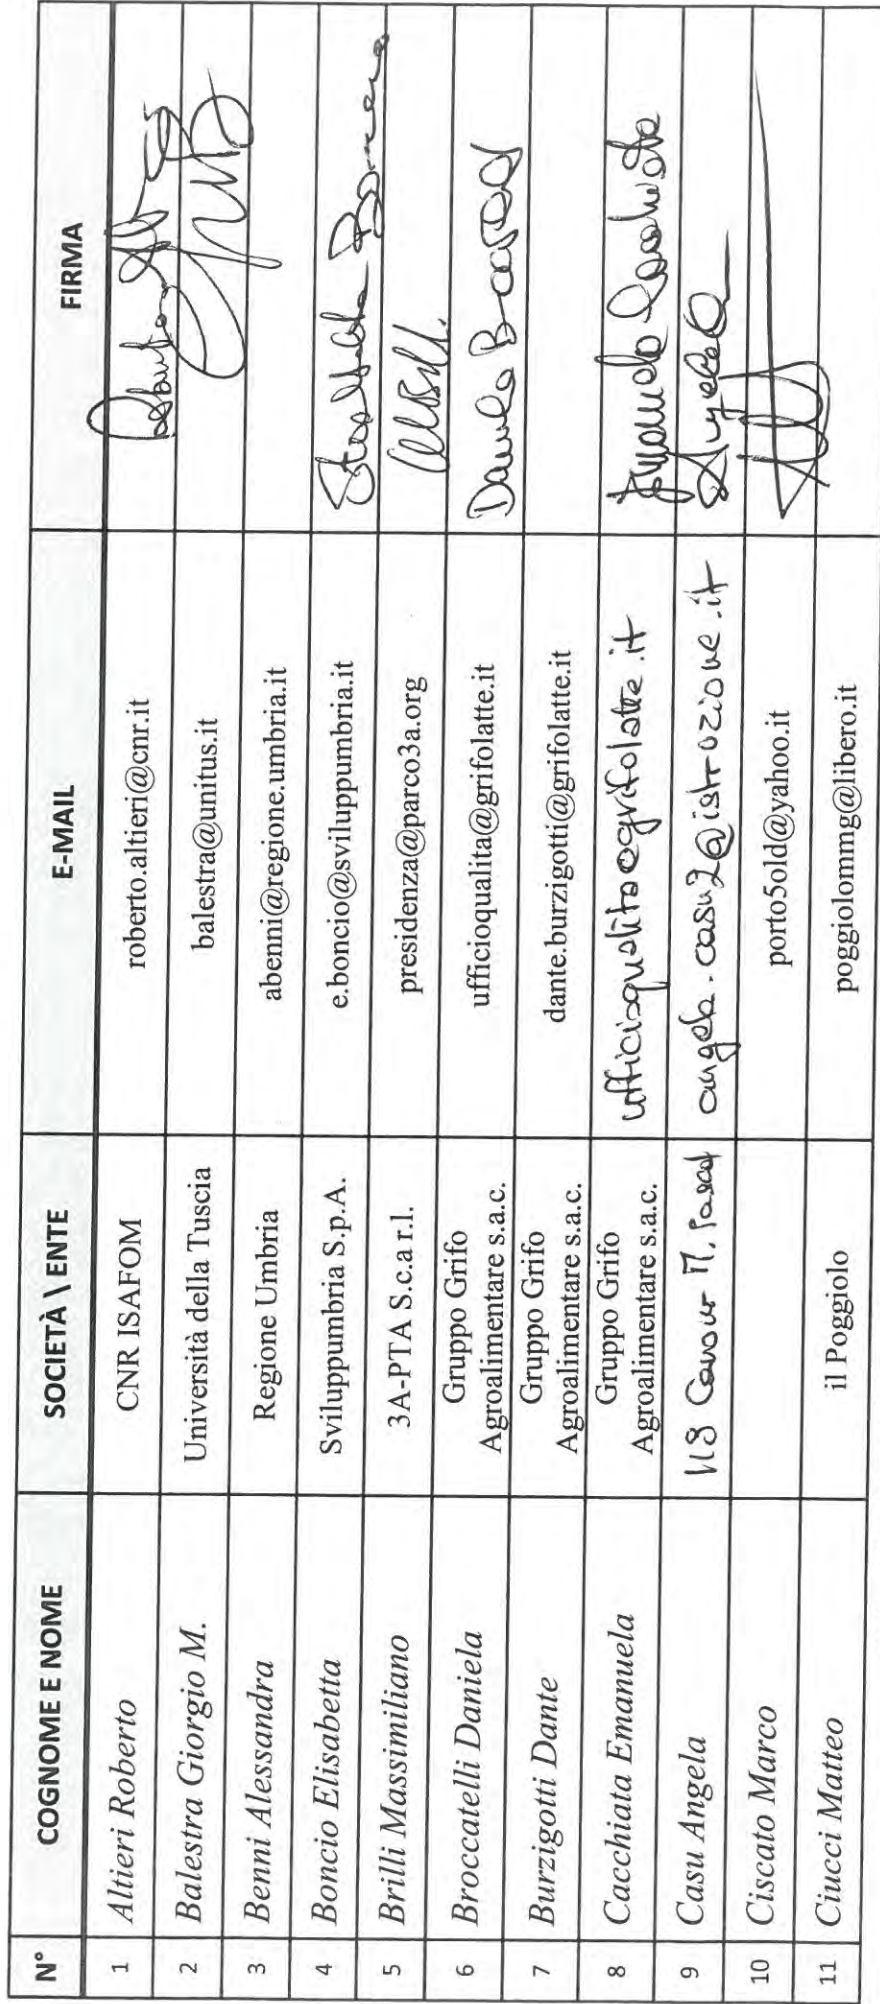 N° COGNOME E NOME SOCIETÀ \ ENTE E-MAIL FIRMA
1 Altieri Roberto CNR ISAFOM roberto.altieri@cnr.it Roberto
2 Balestra Giorgio M. Università della Tuscia balestra@unitus.it
3 Benni Alessandra Regione Umbria abenni@regione.umbria.it
4 Boncio Elisabetta Sviluppumbria S.p.A. e.boncio@sviluppumbria.it
5 Brilli Massimiliano 3A-PTA S.c.a r.l. presidenza@parco3a.org
6 Broccatelli Daniela Gruppo Grifo
Agroalimentare s.a.c. ufficioqualita@grifolatte.it Daniela
7 Burzigotti Dante Gruppo Grifo
Agroalimentare s.a.c. dante.burzigotti@grifolatte.it
8 Cacchiata Emanuela Gruppo Grifo
Agroalimentare s.a.c. ufficioqualita@grifolatte.it Emanuela Cacchiata
9 Casu Angela Cavour M. angela.casu2@istruzione.it Angela
10 Ciscato Marco porto5old@yahoo.it
11 Ciucci Matteo il Poggiolo poggiolommg@libero.it